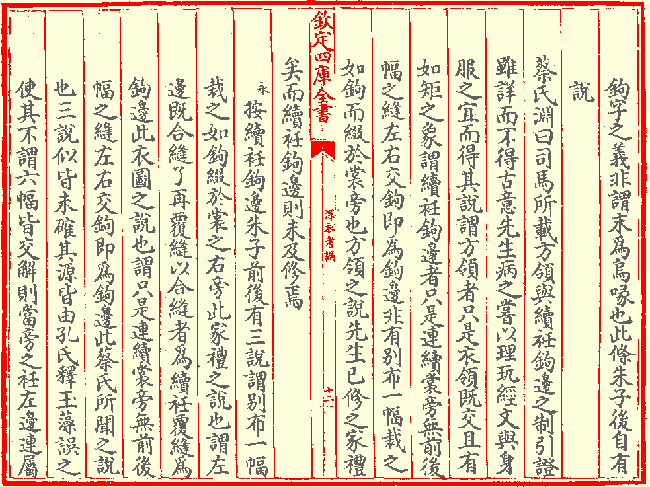 鉤字之義非謂末為鳥喙也此條朱子後自有
説
蔡氏淵曰司馬所載方領與續衽鉤邊之制引證
雖詳而不得古意先生病之嘗以理玩經文與身
服之宜而得其説謂方領者只是衣領既交且有
如矩之象謂續衽鉤邊者只是連續裳旁無前後
幅之縫左右交鉤即為鉤邊非有别布一幅裁之
如鉤而綴於裳旁也方領之説先生已修之家禮
矣而續衽鉤邊則未及修焉
欽定四庫全書
深衣考誤
十二
永按續衽鉤邊朱子前後有三説謂别布一幅
裁之如鉤綴於裳之右旁此家禮之説也謂左
邊既合縫了再覆縫以合縫者為續衽覆縫為
鉤邊此衣圖之説也謂只是連續裳旁無前後
幅之縫左右交鉤即為鉤邊此蔡氏所聞之説
也三説似皆未確其源皆由孔氏釋玉藻誤之
使其不謂六幅皆交解則當旁之衽左邊連屬